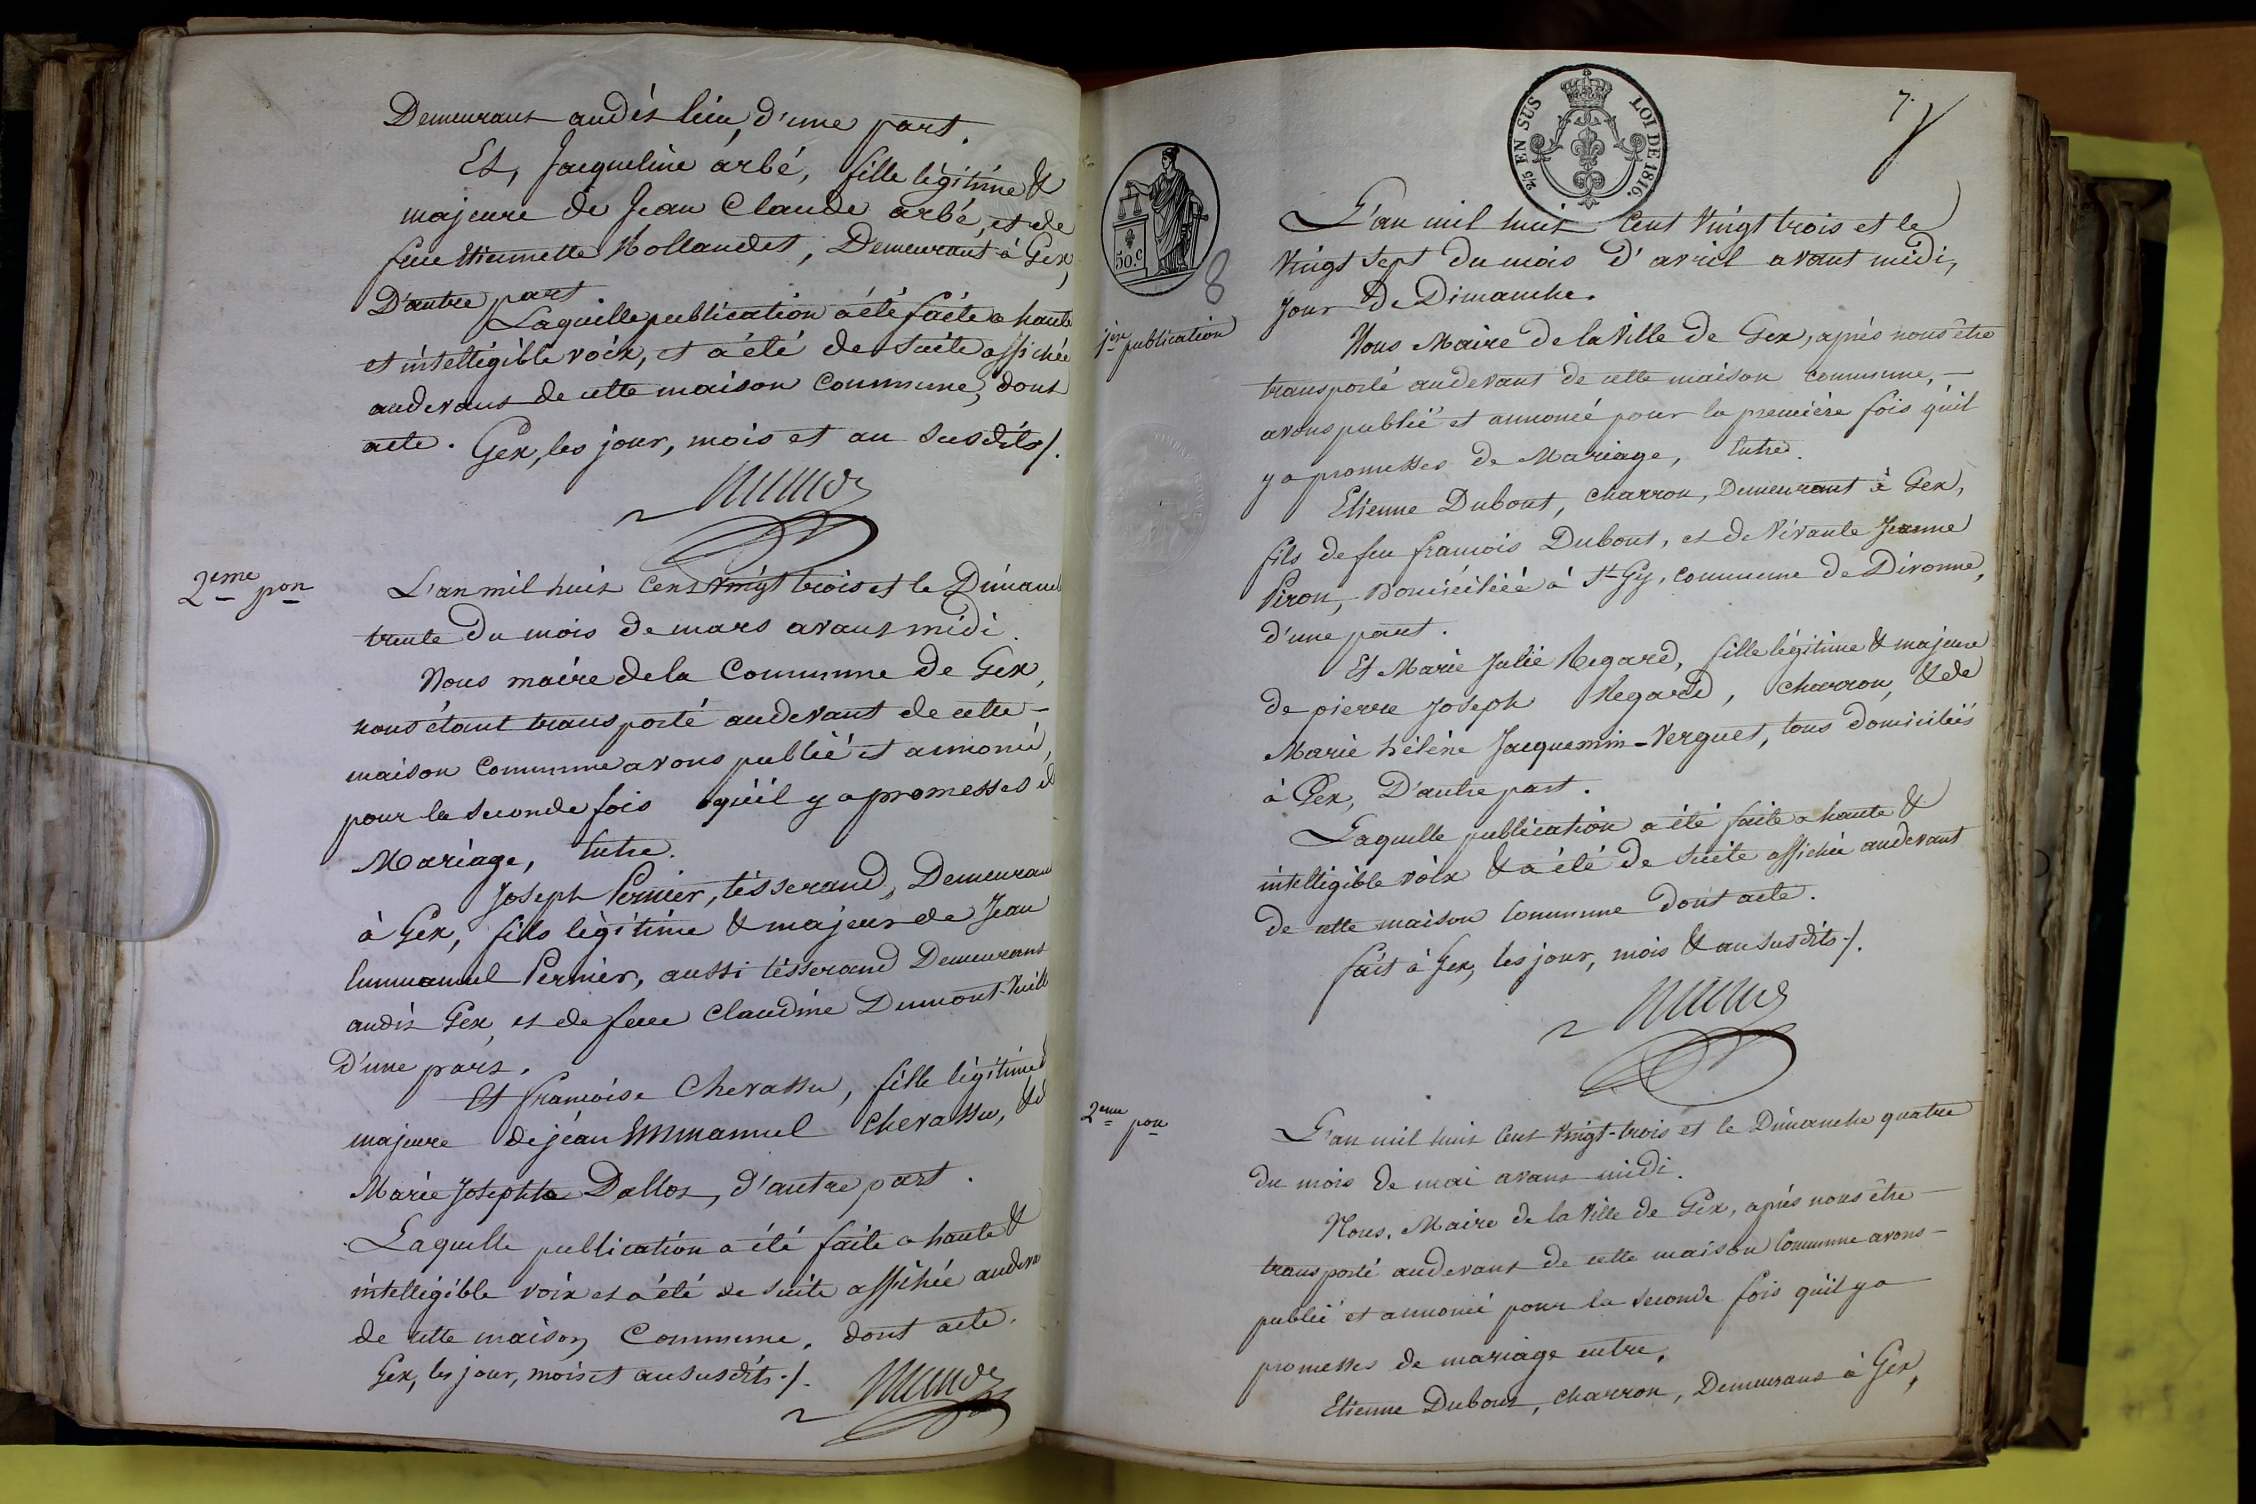 Demeurant audit lieu, d'une part.
Et, Jacqueline arbé, fille légitime &
majeure de Jean Claude arbé, et de
feue Etiennette Rollandet, Demeurant à Gex,
D'autre part
Laquelle publication a été faite a haute
et intelligible voix, et a été de suite affichée
audevant de cette maison commune, dont
acte. Gex, les jour, mois et an susdits /.
2eme pon
L'an mil huit cent vingt trois et le Dimanc
trente du mois de mars avant midi.
Nous maire de la Commune de Gex,
nous étant transporté audevant de cette
maison commune avons publié et annoncé,
pour la seconde fois qu'il y a promesses d
Mariage, Entre.
Joseph Pernier, tisserand, Demeuran
à Gex, fils légitime & majeur de Jean
Emmanuel Pernier, aussi tisserand Demeurant
audit Gex, et de feue Claudine Dumont
D'une part.
Et françoise Chevassu, fille légitime &
majeure de jean Emmanuel Chevassu, &
Marie Josephte Dalloz, d'autre part.
Laquelle publication a été faite a haute &
intelligible voix et a été de suite affichée audeva
de cette maison Commune, dont acte.
Gex, les jour, mois et an susdits ./.
7.
2/5 EN SUS LOI DE 1816.
50.c
8
1ere publication
L'an mil huit Cent Vingt trois et le
Vingt sept du mois d'avril avant midi,
jour de Dimanche.
Nous Maire de la Ville de Gex, après nous être
transporté audevant de cette maison commune,
avons publié et annoncé pour la première fois qu'il
y a promesses de Mariage, Entre.
Etienne Dubout, charron, Demeurant à Gex,
fils de feu françois Dubout, et de Vivante Jeanne
Piron, Domiciliée à St Gy, commune de Divonne,
d'une part.
Et Marie Julie Regard, fille légitime & majeure
de pierre Joseph Regard, charron, & de
Marie hélène Jacquemin-Verguet, tous domiciliés
à Gex, D'autre part.
Laquelle publication a été faite a haute &
intelligible voix & a été de suite affichée audevant
de cette maison Commune Dont acte.
fait à Gex, les jour, mois & an susdits ./.
2eme pon
L'an mil huit Cent Vingt-trois et le Dimanche quatre
du mois de mai avant midi.
Nous, Maire de la Ville de Gex, après nous être
transporté audevant de cette maison Commune avons
publié et annoncé pour la seconde fois qu'il y a
promesses de mariage entre,
Etienne Dubout, charron, Demeurant à Gex,